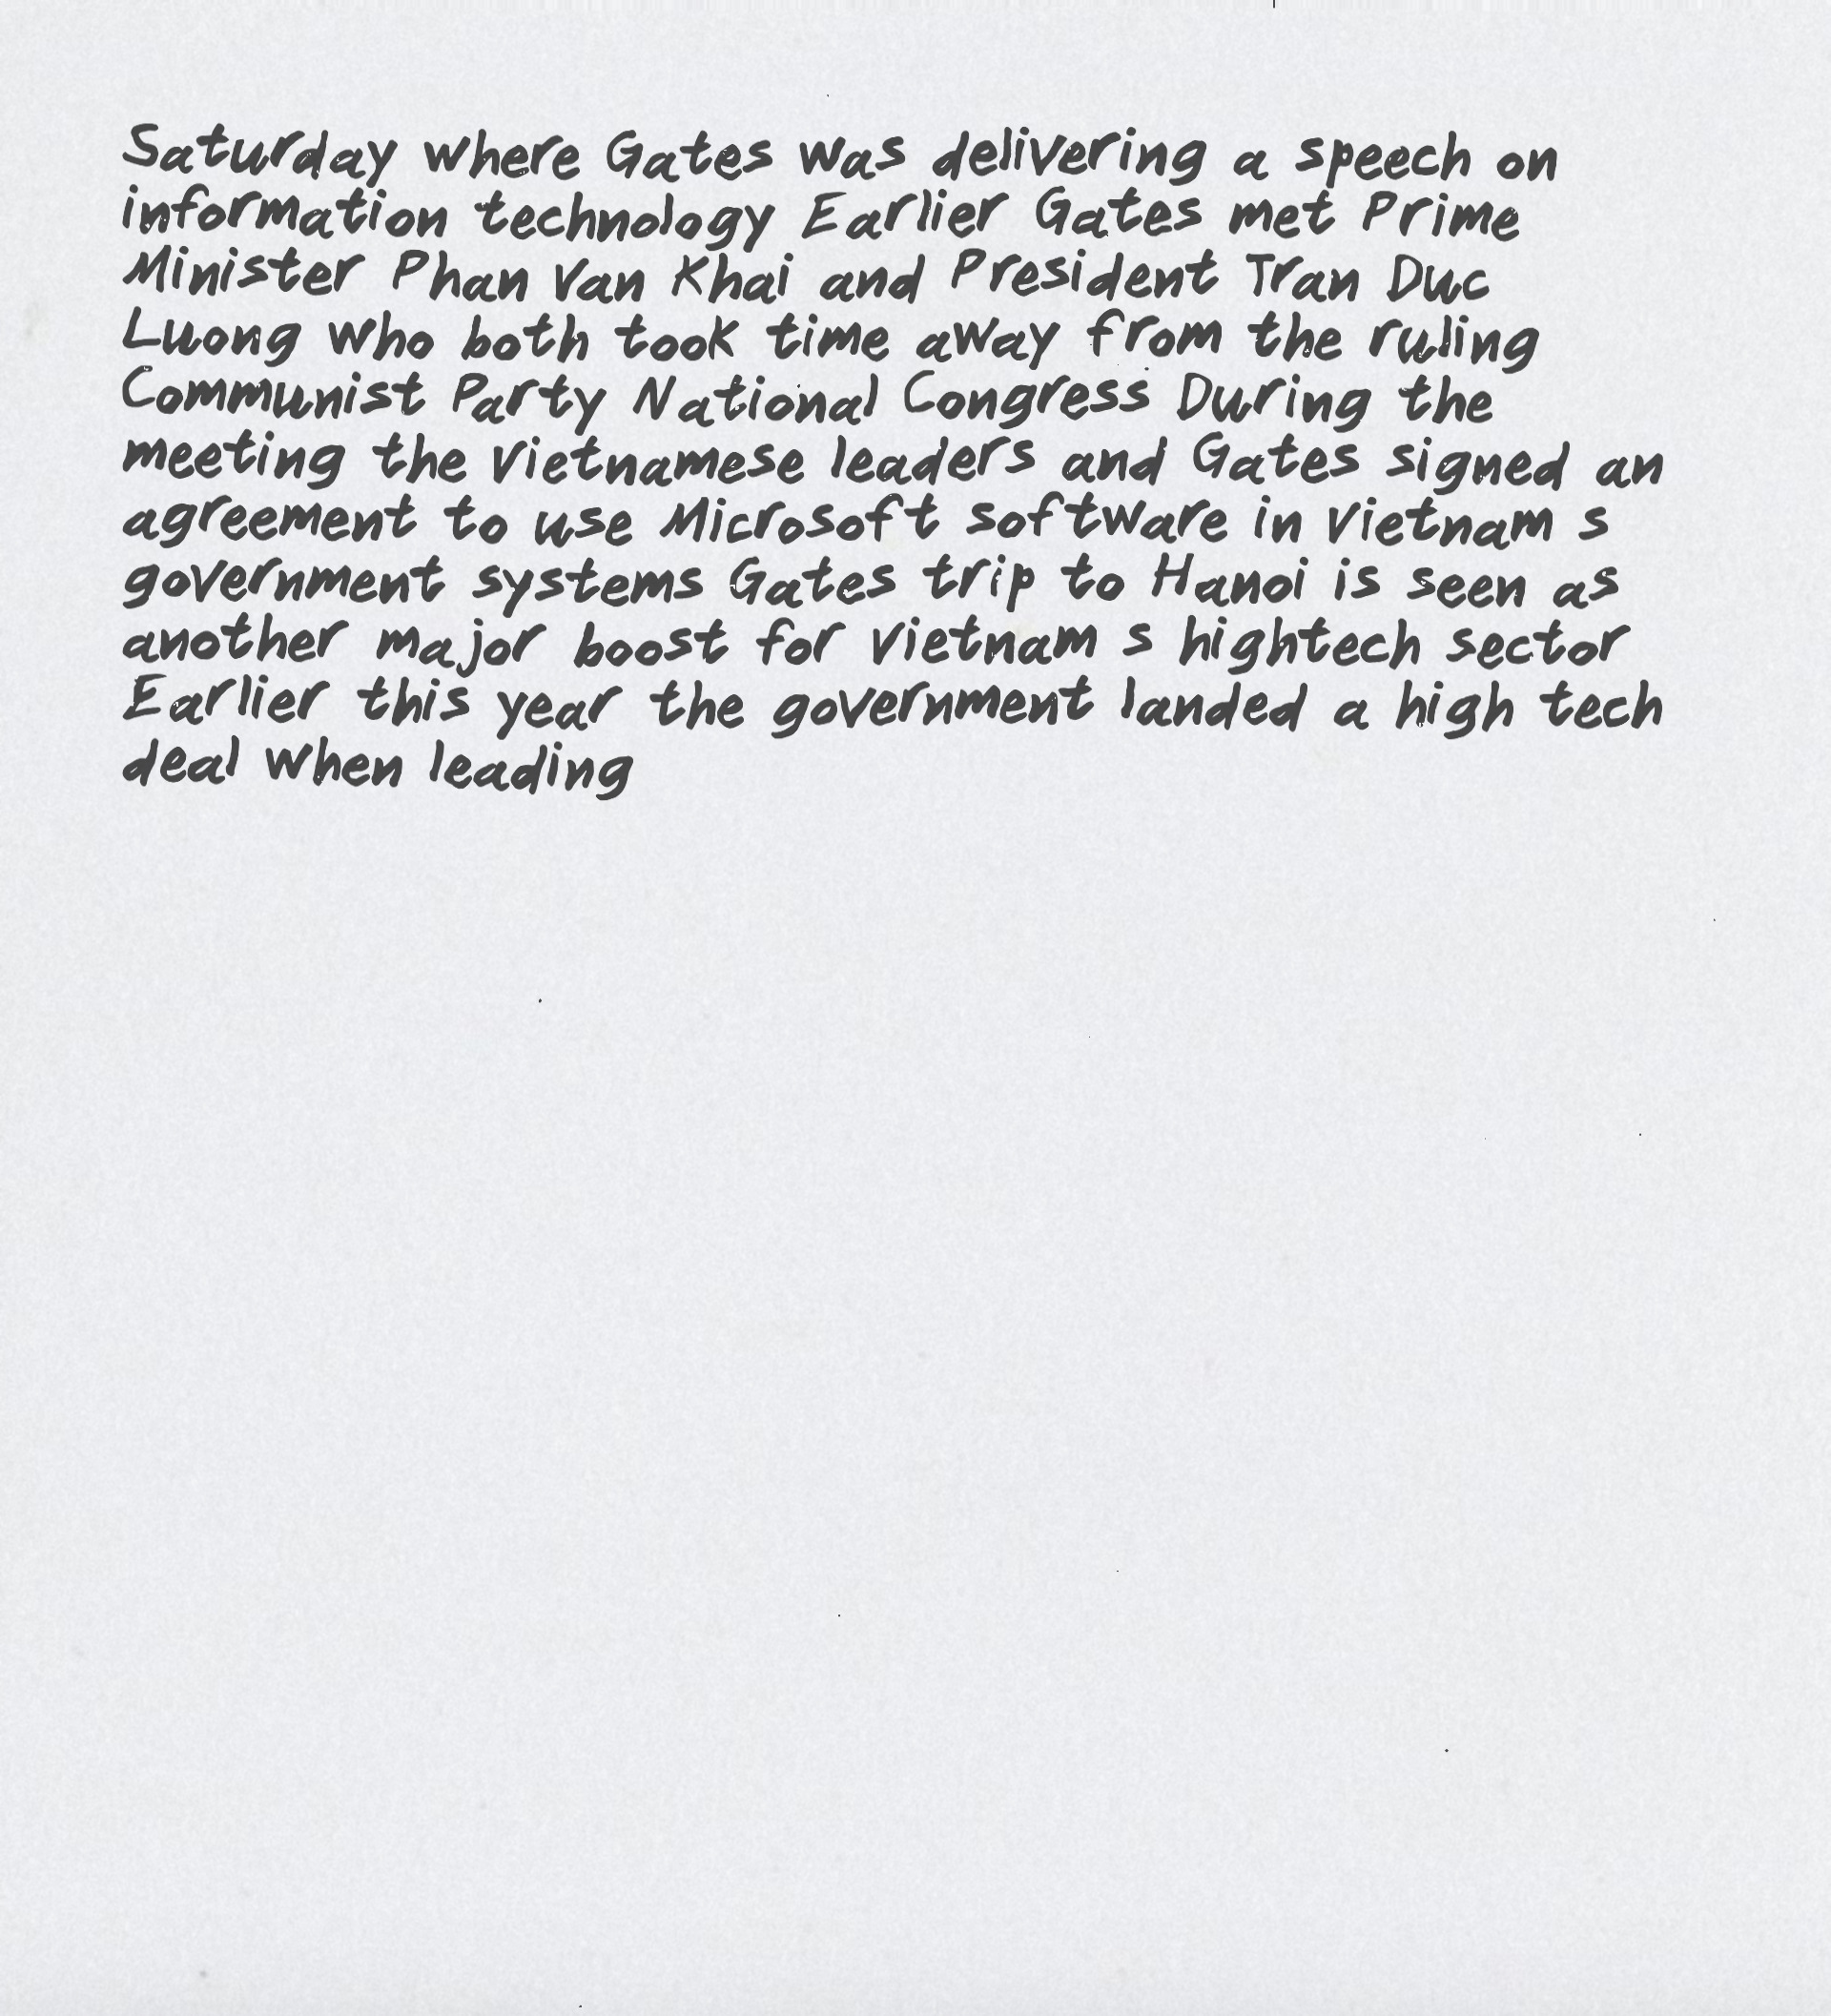 Saturday where Gates was delivering a speech on
information technology Earlier Gates met Prime
Minister Phan Van Khai and President Tran Duc
Luong who both took time away from the ruling
Communist Party National Congress During the
meeting the Vietnamese leaders and Gates signed an
agreement to use Microsoft software in Vietnam s
government systems Gates trip to Hanoi is seen as
another major boost for Vietnam s hightech sector
Earlier this year the government landed a high tech
deal when leading